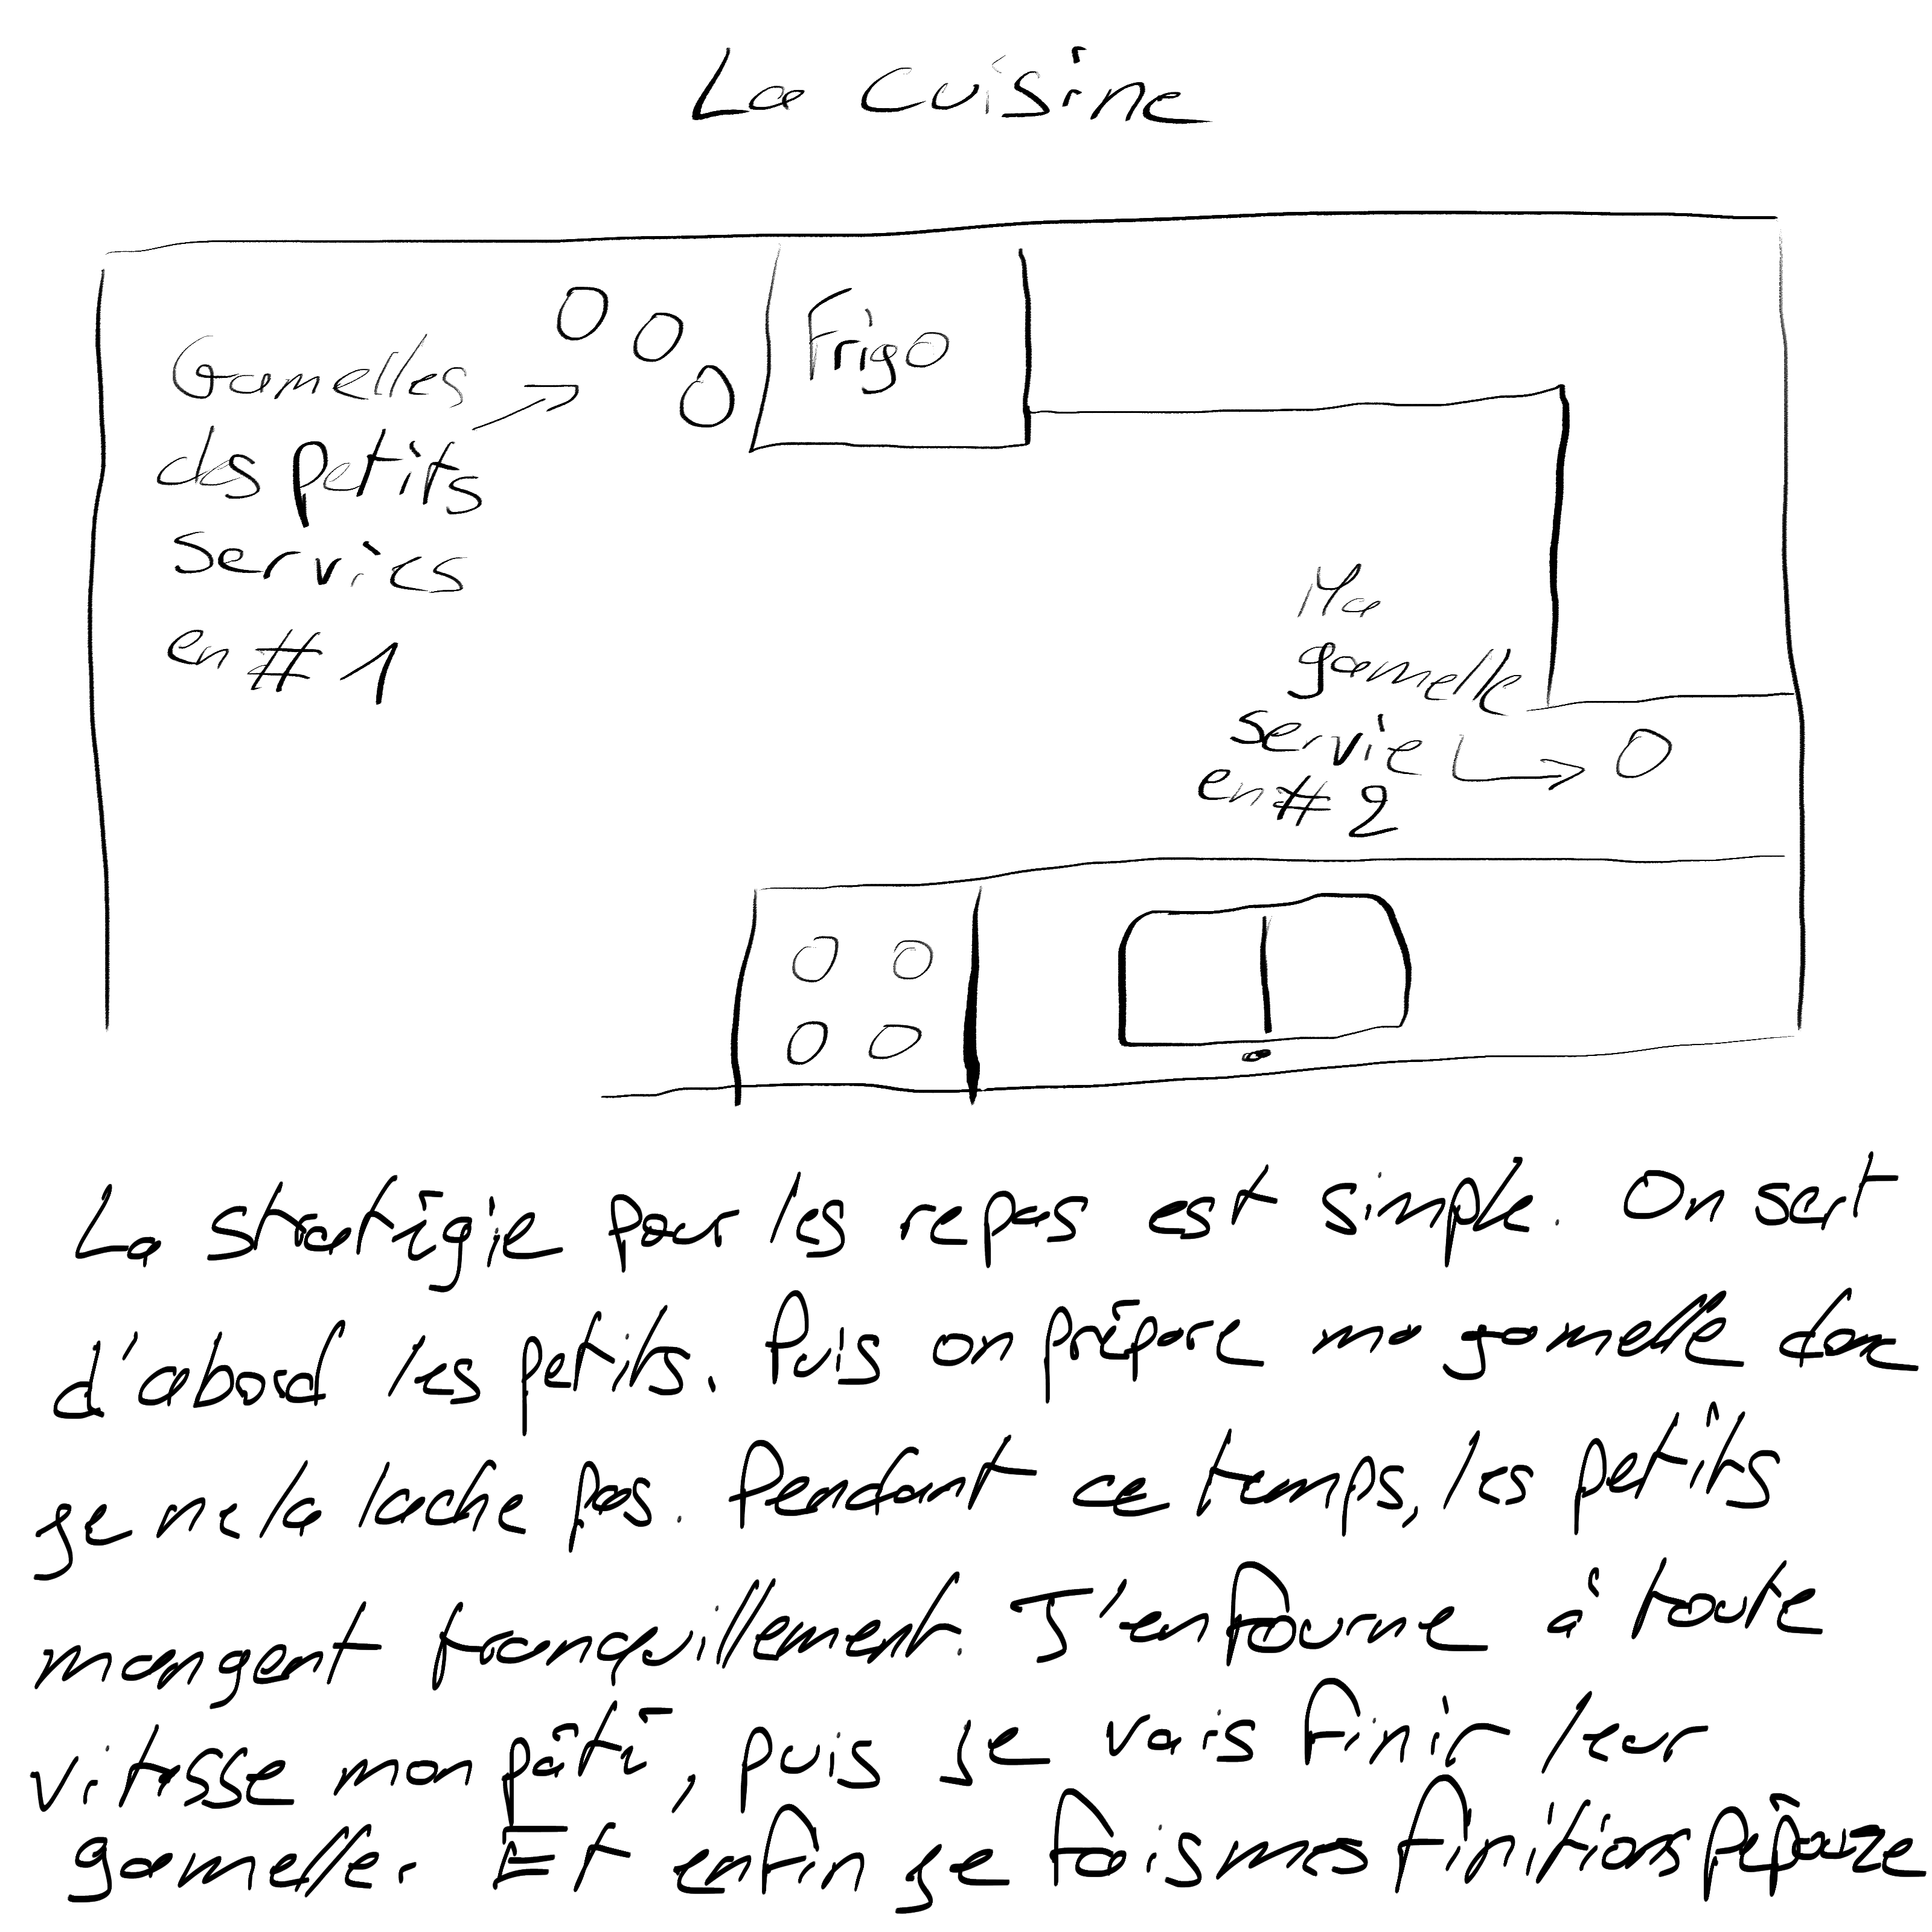 La cuisine
Frigo
Gamelles
des petits
servies
en # 1
Ma
gamelle
servie
en # 2
La stratégie pour les repas est simple. On sert
d'abord les petits. Puis on prépare ma gamelle donc
je ne la lache pas. Pendant ce temps, les petits
mangent tranquillement. J'enfourne à toute
vitesse mon pâté, puis je vais finir leur
gamelle. Et enfin je fais mes finitions pépouze